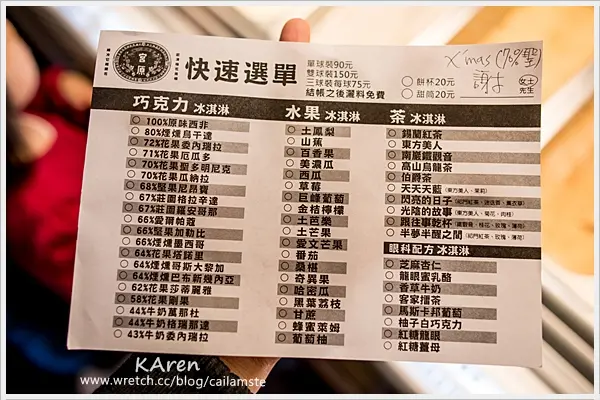 宮原
快速選單
單球裝90元
雙球裝150元
三球裝每球75元
結帳之後灑料免費
餅杯20元
甜筒20元
X'mas (70%聖)
謝
女士
先生
巧克力 冰淇淋
100%原味西非
80%煙燻烏干達
72%花果委內瑞拉
71%花果厄瓜多
70%花果聖多明尼克
70%花果瓜納拉
68%堅果尼昂寶
67%莊園格拉辛達
67%莊園羅安哥那
66%愛爾帕蔻
66%堅果加勒比
66%煙燻墨西哥
64%花果塔諾里
64%煙燻哥斯大黎加
64%煙燻巴布新幾內亞
62%花果莎蒂麗雅
58%花果剛果
44%牛奶萬那杜
44%牛奶格瑞那達
43%牛奶委內瑞拉
水果 冰淇淋
土鳳梨
山蕉
百香果
美濃瓜
西瓜
草莓
巨峰葡萄
金桔檸檬
土芭樂
土芒果
愛文芒果
番茄
桑椹
奇異果
哈密瓜
黑葉荔枝
甘蔗
蜂蜜萊姆
葡萄柚
茶 冰淇淋
錫蘭紅茶
東方美人
南巖鐵觀音
高山烏龍茶
伯爵茶
天天天藍(東方美人、茉莉)
閃亮的日子
光陰的故事(東方美人、菊花、肉桂)
跟往事乾杯
半夢半醒之間(祁門紅茶、玫瑰、薄荷)
眼科配方 冰淇淋
芝麻杏仁
龍眼蜜乳酪
香草牛奶
客家擂茶
馬斯卡邦葡萄
柚子白巧克力
紅糖龍眼
紅糖薑母
KAren
www.wretch.cc/blog/cailamste